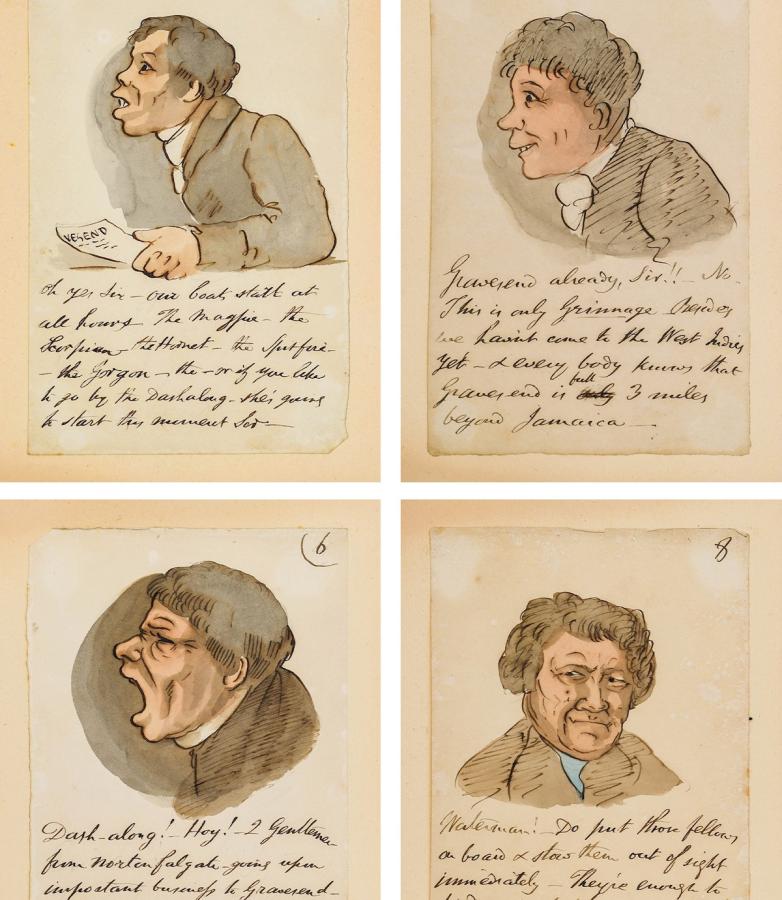 VESEND
Oh yes Sir – our boats start at
all hours The Magpie – the
Scorpion the Hornet – the Spitfire –
– the Gorgon – the – or if you like
to go by the Dashalong – she's going
to start this moment Sir –
Gravesend already, Sir!! – No –
This is only Grinnage Besides
we havint come to the West Indies
yet – & every body knows that
Gravesend is full 3 miles
beyond Jamaica –
6
Dash-along! – Hoy! – 2 Gentlemen
from Norton falgate going upon
important business to Gravesend –
8
Waterman! – Do put those fellows
on board & stow them out of sight
immediately – They're enough to